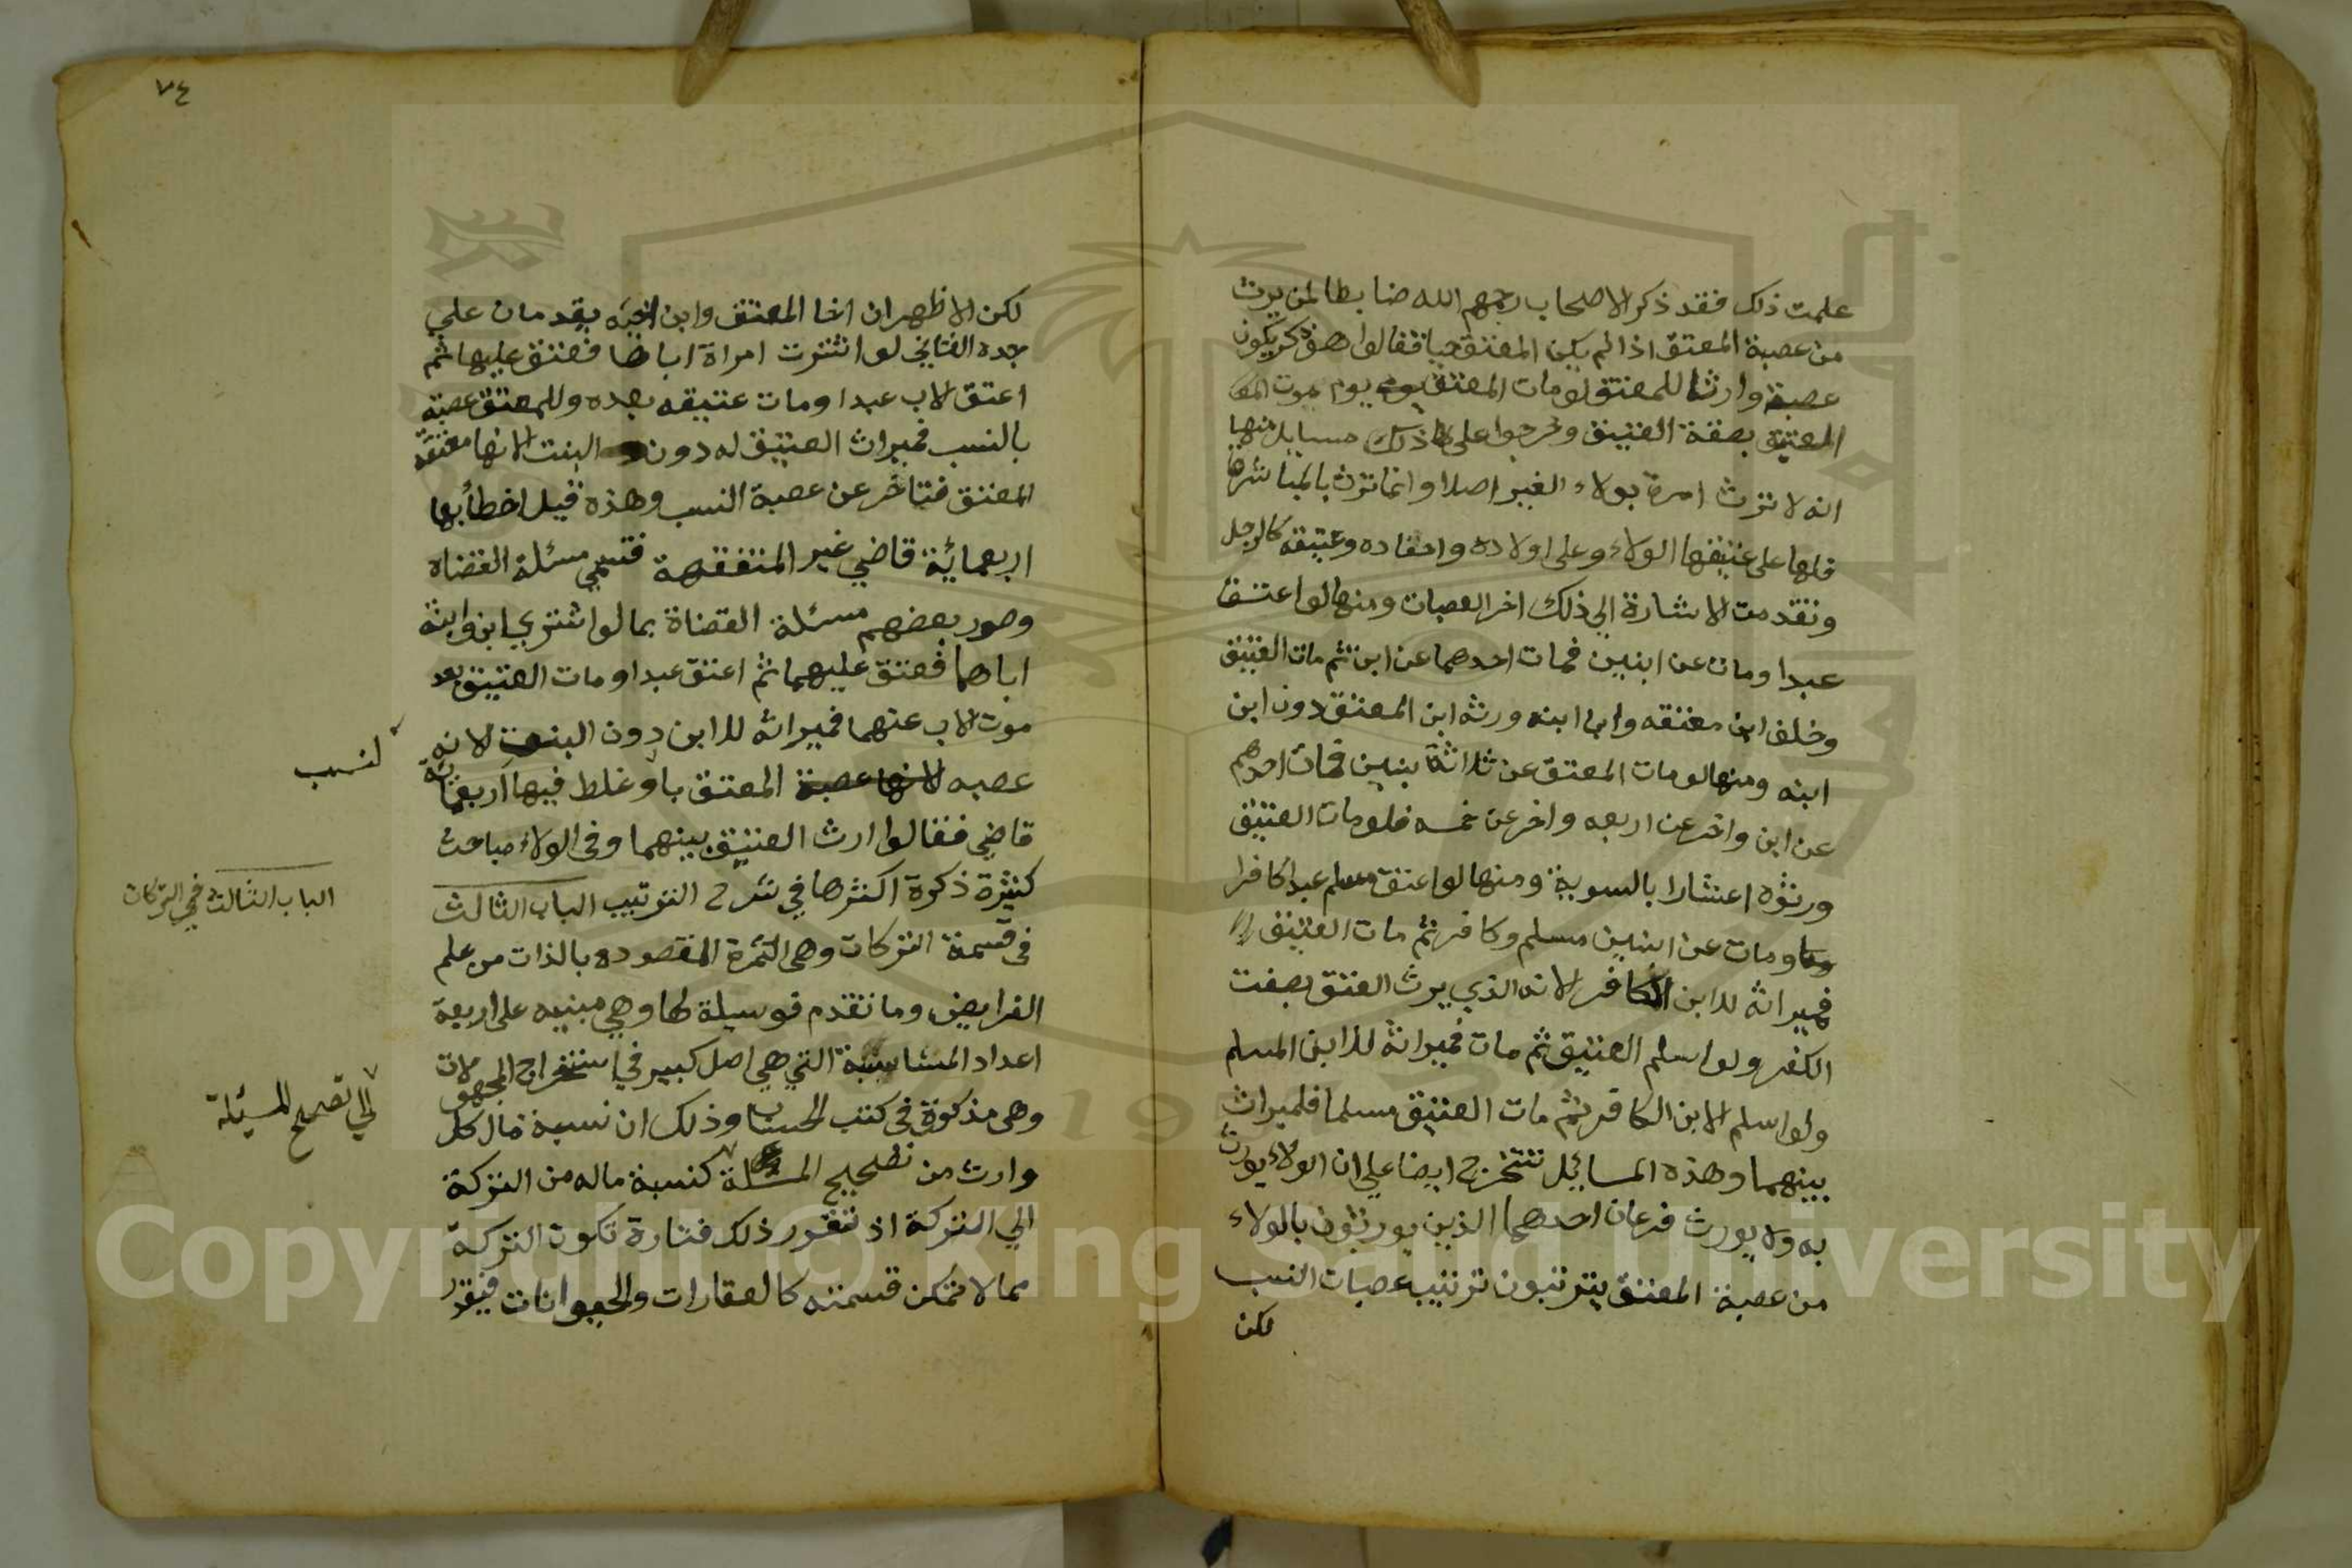 علمت ذلك فقد ذكر الاصحاب رحمهم الله ضابطا لمن يرث
من عصبة المعتق اذا لم يكن المعتق حيا فقالوا هو ذكر يكون
عصبة وارثا للمعتق لو مات المعتق يوم موت
العتيق بصفة العتيق وخرجوا على ذلك مسايل منها
انه لا ترث امرة بولاء الغير اصلا وانما ترث بالمباشرة
فلها على عتيقها الولاء وعلى اولاده واحفاده وعتيقه كالرجل
وتقدمت الاشارة الي ذلك اخر العصبات ومنها لو اعتق
عبدا ومات عن ابنين فمات احدهما عن ابن ثم مات العتيق
وخلف ابن معتقه وابن ابنه ورثه ابن المعتق دون ابن
ابنه ومنها لو مات المعتق عن ثلاثة بنين فمات احدهم
عن ابن واخر عن اربعه واخر عن خمسه فلو مات العتيق
ورثوه اعشارا بالسوية ومنها لو اعتق مسلم عبدا كافرا
ومات عن ابنين مسلم وكافر ثم مات العتيق
فميراثه للابن الكافر لانه الذي يرث العتق بصفت
الكفر ولو اسلم العتيق ثم مات فميراثه للابن المسلم
ولو اسلم الابن الكافر ثم مات العتيق مسلما فلميراث
بينهما وهذه المسائيل تتخرج ايضا علي ان الولاء يورث
به ولا يورث فرعان احدهما الذين يورثون بالولاء
من عصبة المعتق يترتبون ترتيب عصبات النسب
لكن
٧٤
لكن الاظهر ان اخا المعتق وابن اخيه يقدمان علي
جده الثاني لو اشترت امراة اباها فعتق عليها ثم
اعتق الاب عبدا ومات عتيقه بعده وللمعتق عصبة
بالنسب فميراث العتيق له دون البنت لانها معتقة
المعتق فتاخر عن عصبة النسب وهذه قيل اخطأ بها
اربعمائة قاضي غير المتفقهة فتسمي مسئلة القضاة
وصور بعضهم مسئلة القضاة بما لو اشتري ابن وابنة
اباهما فعتق عليهما ثم اعتق عبدا ومات العتيق بعد
موت الاب عنهما فميراثه للابن دون البنت لانه
عصبه لانها عصبة المعتق وغلط فيها اربعمائة
لنسب
قاضي فقالوا ارث العتيق بينهما وفي الولاء مباحث
كثيرة ذكرة اكثرها في شرح الترتيب الباب الثالث
الباب الثالث في التركات
في قسمة التركات وهي الثمرة المقصوده بالذات من علم
الفرايض وما تقدم فوسيلة لها وهي مبنيه على اربعة
اعداد المتناسبة التي هي اصل كبير في استخراج المجهولات
وهي مذكورة في كتب الحساب وذلك ان نسبة مال كل
وارث من تصحيح المسئلة كنسبة ماله من التركة
الي تصحيح المسئيلة
الي التركة اذ تقرر ذلك فتارة تكون التركة
مما لا تمكن قسمته كالعقارات والحيوانات فيقدر
Copyright © King Saud University